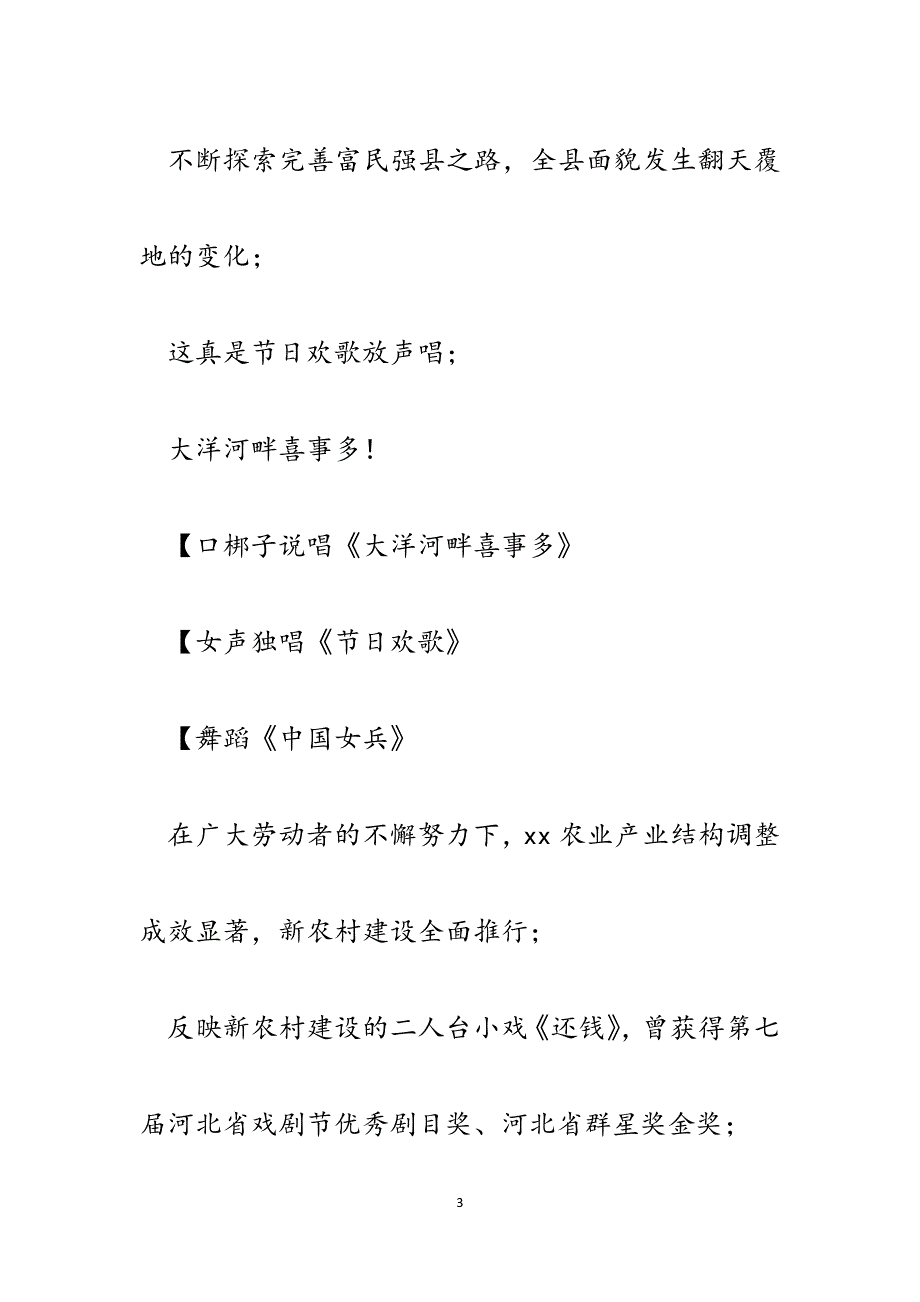 不断探索完善富民强县之路，全县面貌发生翻天覆
地的变化；
这真是节日欢歌放声唱；
大洋河畔喜事多！
【口梆子说唱《大洋河畔喜事多》
【女声独唱《节日欢歌》
【舞蹈《中国女兵》
在广大劳动者的不懈努力下，xx 农业产业结构调整
成效显著，新农村建设全面推行；
反映新农村建设的二人台小戏《还钱》，曾获得第七
届河北省戏剧节优秀剧目奖、河北省群星奖金奖；
3